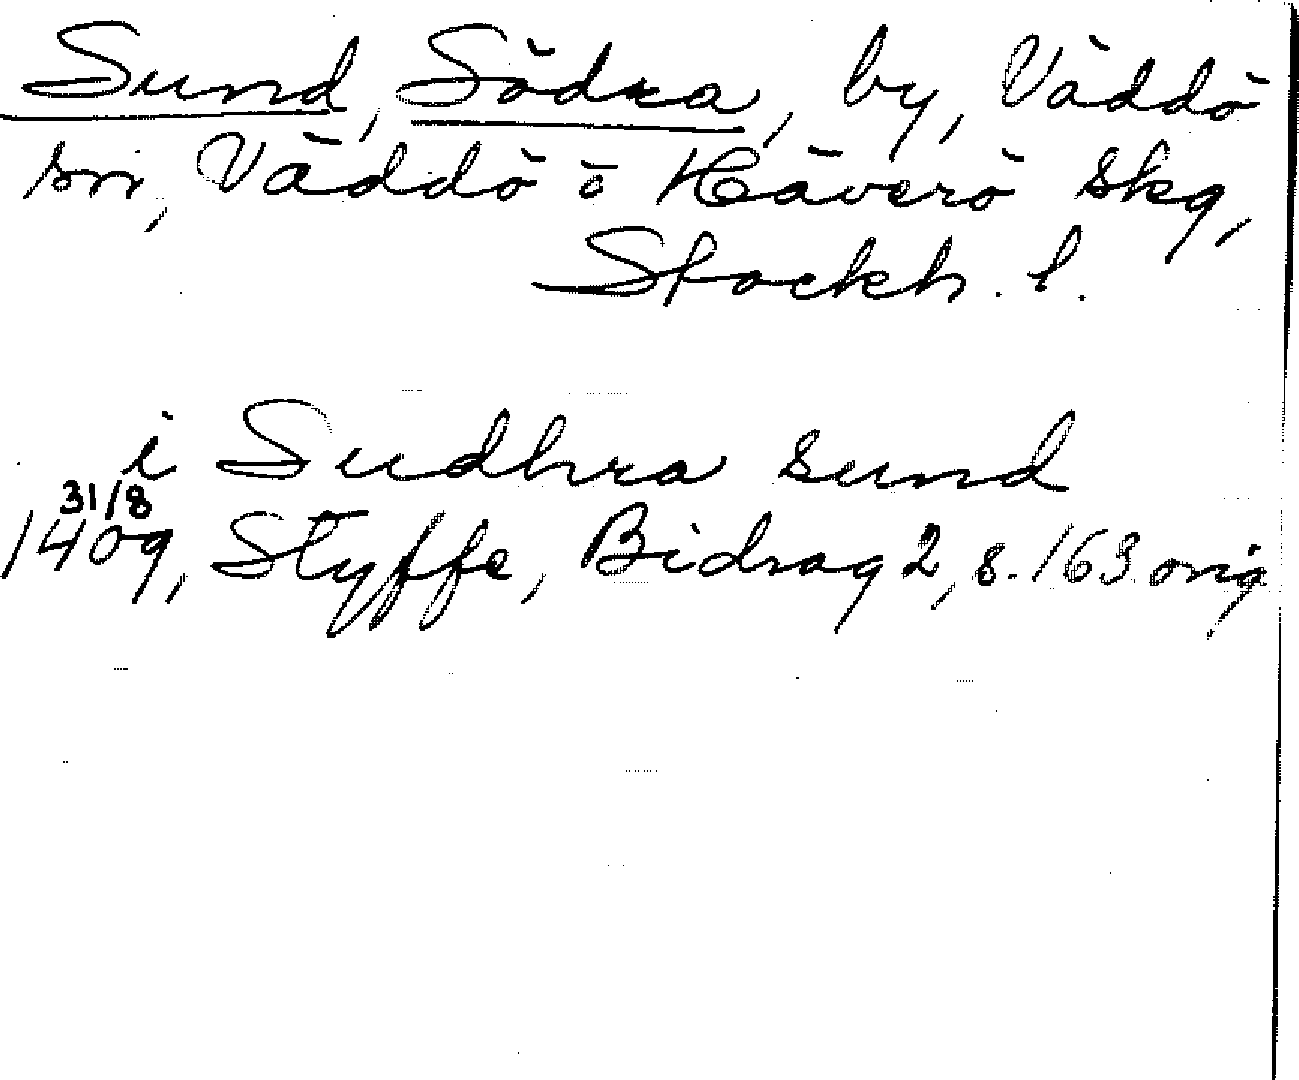 Sund, Södra, by, Väddö
sn, Väddö o Häverö skg,
Stockh. l.
i Sudhra sund
31/8
1409, Styffe, Bidrag 2, s. 163 orig